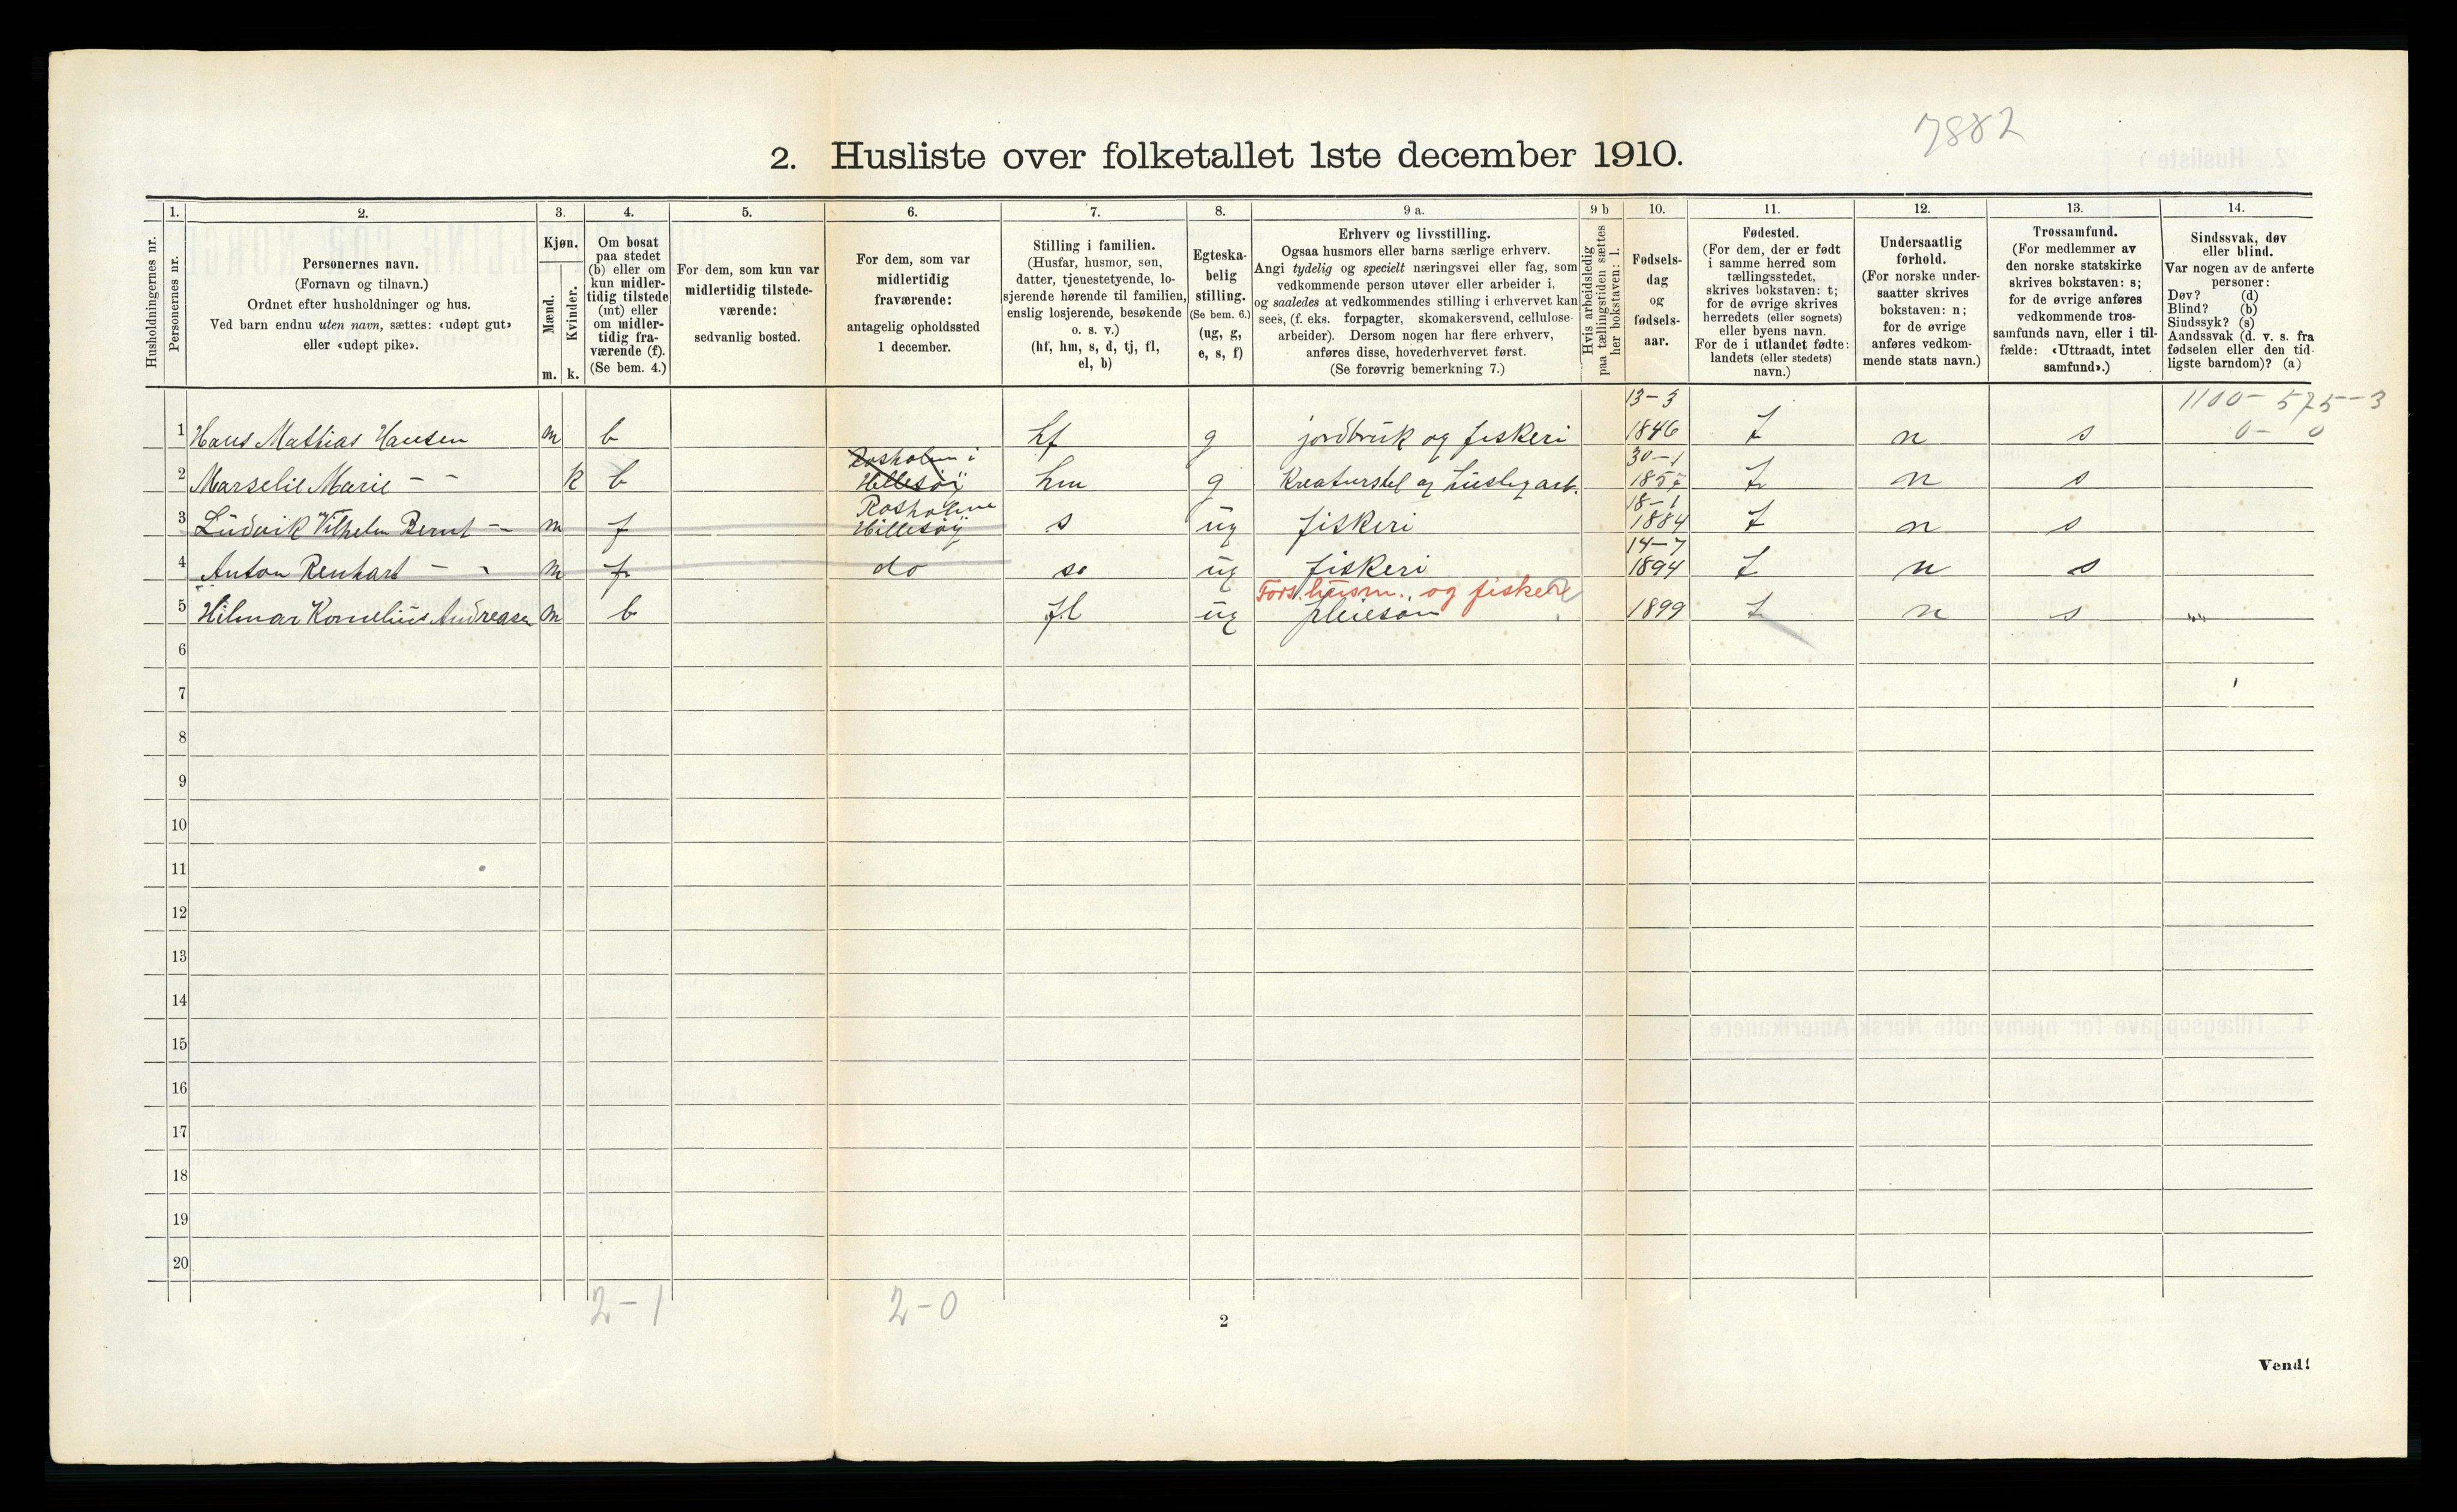 7882
2. Husliste over folketallet 1ste december 1910.
Husholdningernes nr.
1.
Personernes nr.
2.
Personernes navn.
(Fornavn og tilnavn.)
Ordnet efter husholdninger og hus.
Ved barn endnu uten navn, sættes: «udøpt gut»
eller «udøpt pike».
3.
Kjøn.
Mænd.
Kvinder.
m. k.
4.
Om bosat
paa stedet
(b) eller om
kun midler-
tidig tilstede
(mt) eller
om midler-
tidig fra-
værende (f).
(Se bem. 4.)
5.
For dem, som kun var
midlertidig tilstede-
værende:
sedvanlig bosted.
6.
For dem, som var
midlertidig
fraværende:
antagelig opholdssted
1 december.
7.
Stilling i familien.
(Husfar, husmor, søn,
datter, tjenestetyende, lo-
sjerende hørende til familien,
enslig losjerende, besøkende
o. s. v.)
(hf, hm, s, d, tj, fl,
el, b)
8.
Egteska-
belig
stilling.
(Se bem. 6.)
(ug, g,
e, s, f)
9 a.
Erhverv og livsstilling.
Ogsaa husmors eller barns særlige erhverv.
Angi tydelig og specielt næringsvei eller fag, som
vedkommende person utøver eller arbeider i,
og saaledes at vedkommendes stilling i erhvervet kan
sees, (f. eks. forpagter, skomakersvend, cellulose-
arbeider). Dersom nogen har flere erhverv,
anføres disse, hovederhvervet først.
(Se forøvrig bemerkning 7.)
9 b
Hvis arbeidsledig
paa tællingstiden sættes
her bokstaven: l.
10.
Fødsels-
dag
og
fødsels-
aar.
11.
Fødested.
(For dem, der er født
i samme herred som
tællingsstedet,
skrives bokstaven: t;
for de øvrige skrives
herredets (eller sognets)
eller byens navn.
For de i utlandet fødte:
landets (eller stedets)
navn.)
12.
Undersaatlig
forhold.
(For norske under-
saatter skrives
bokstaven: n;
for de øvrige
anføres vedkom-
mende stats navn.)
13.
Trossamfund.
(For medlemmer av
den norske statskirke
skrives bokstaven: s;
for de øvrige anføres
vedkommende tros-
samfunds navn, eller i til-
fælde: «Uttraadt, intet
samfund».)
14.
Sindssvak, døv
eller blind.
Var nogen av de anførte
personer:
Døv? (d)
Blind? (b)
Sindssyk? (s)
Aandssvak (d. v. s. fra
fødselen eller den tid-
ligste barndom)? (a)
13-3 1100-575-3
1 Hans Mathias Hansen m b hf g jordbruk og fiskeri 1846 t n s 0-0
Rosholm i 30-1
2 Marselie Marie - - k b Hillesöy hm g Kreaturstel og huslig arb. n s
Rosholme 18-1
3 Ludvik Vilhelm Bernt - m f Hillesöy s ug fiskeri 1884 t n s
14-7
4 Anton Renhart - - m f do s ug fiskeri 1894 t n s
Fors. husm. og fisker
5 Hilmar Kornelius Andreasen m b fl ug pleiesøn 1899 t n s
6
7
8
9
10
11
12
13
14
15
16
17
18
19
20
2-1 2-0
2
Vend!